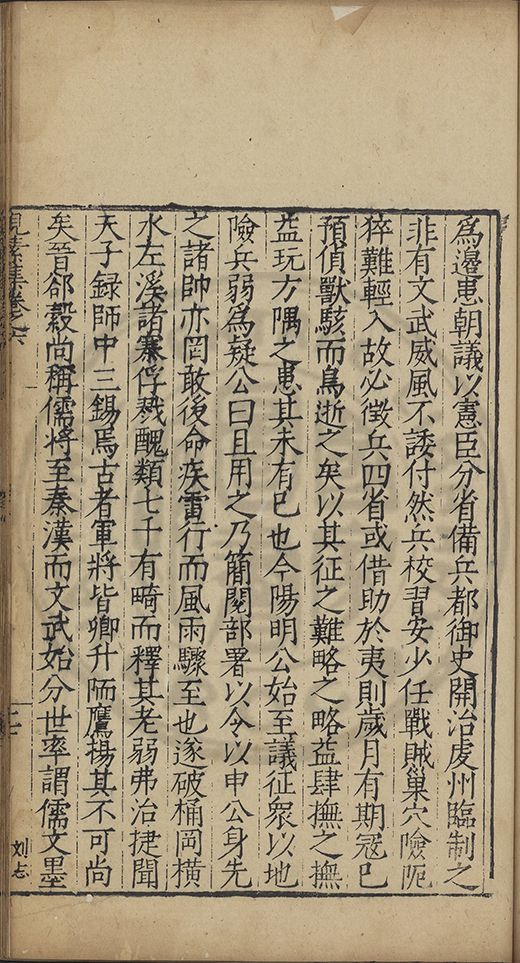 為邊患朝議以憲臣分省備兵都御史開治虔州臨制之
非有文武威風不諉付然兵校習安少任戰賊巢穴險阨
猝難輕入故必徵兵四省或借助於夷則歲月有期寇已
預偵獸駭而鳥逝之矣以其征之難略之略益肆撫之撫
益玩方隅之患其未有已也今陽明公始至議征眾以地
險兵弱為疑公曰且用之乃簡閱部署以令以申公身先
之諸帥亦罔敢後命疾雷行而風雨驟至也遂破桶岡橫
水左溪諸寨俘戮醜類七千有畸而釋其老弱弗治捷聞
天子錄師中三錫焉古者軍將皆卿升陑鷹揚其不可尚
矣晉郤縠尚稱儒將至秦漢而文武始分世率謂儒文墨
見素集卷之六
刘志